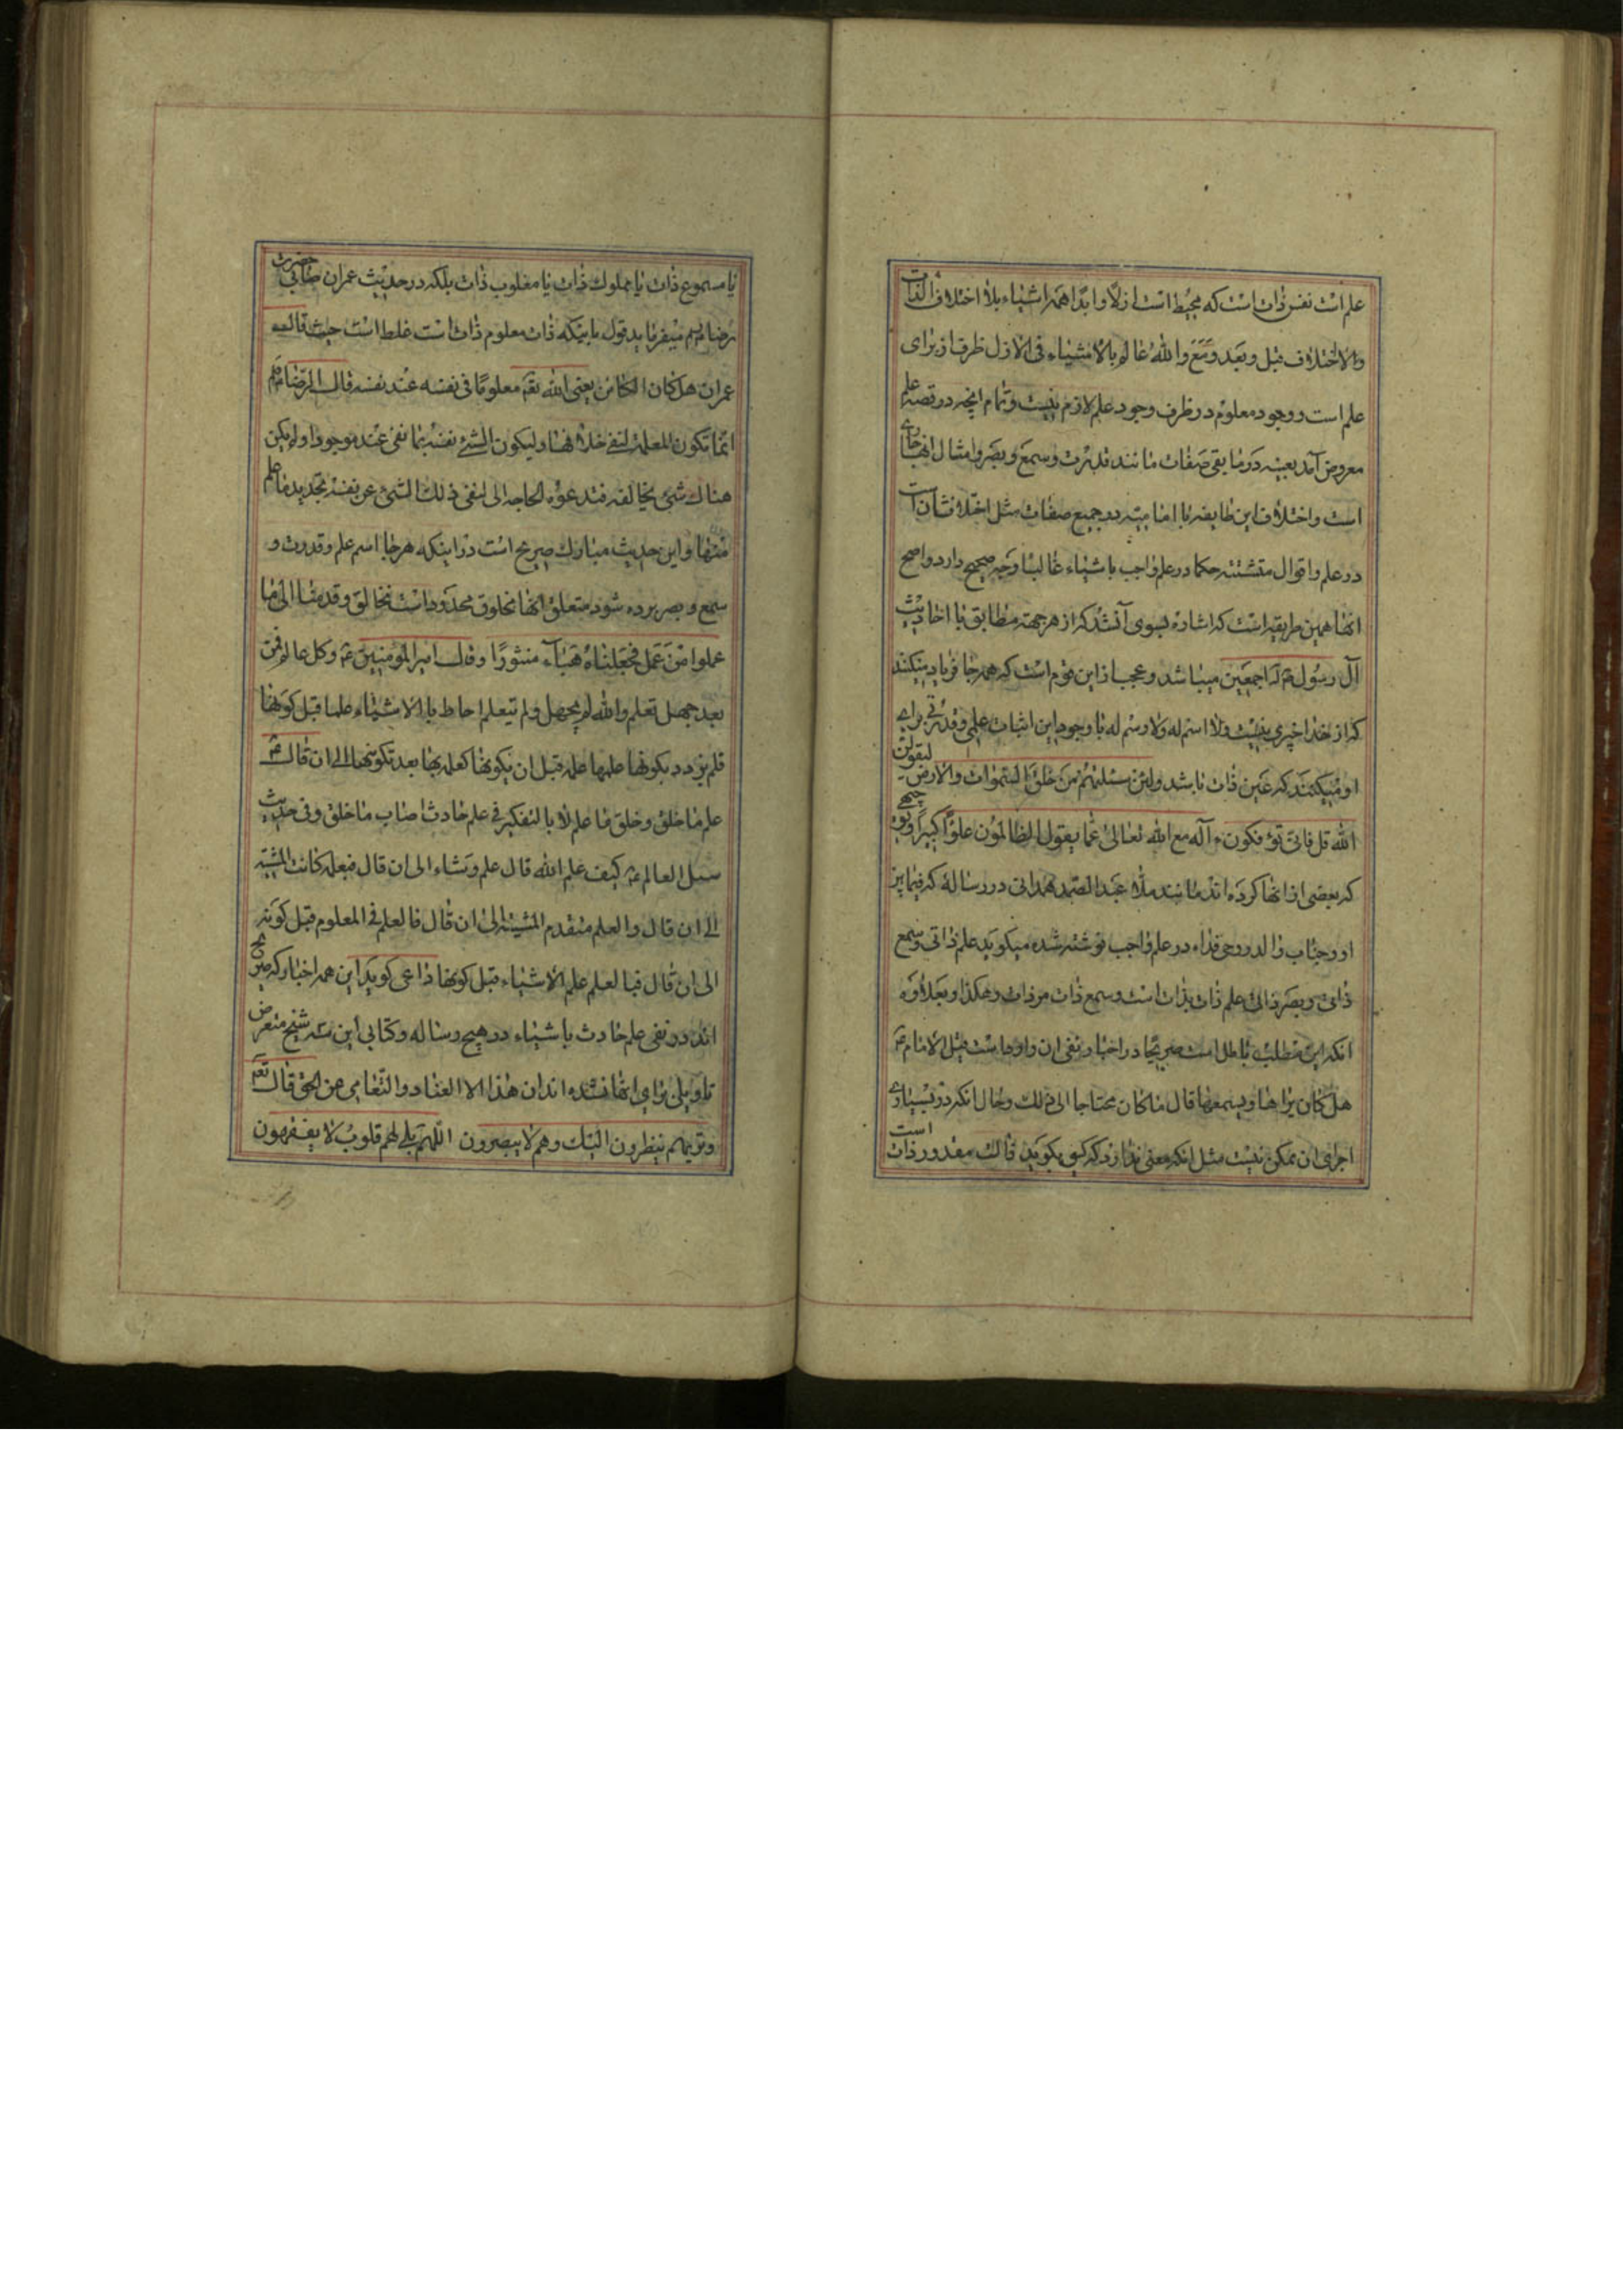 علم است نفس ذات است که محیط است ازلاً و ابداً همه اشیاء بلا اختلاف الذات
والاختلاف قبل و بعد و مَعَ والله عالم بالاشیاء فی الازل ظرف از برای
علم است و وجود معلوم در ظرف وجود علم لازم نیست و تمام انچه در قصه علم
معروض آمد بعینه در مابقی صفات مانند قدرت و سمع و بصر و امثال انها جاری
است و اختلاف این طایفه با امامیه در جمیع صفات مثل اختلافشان است
در علم و اقوال متشتته حکما در علم واجب باشیاء غالبا وجه صحیح دارد واصح
انها همین طریقه است که اشاره بسوی آن شد که از هر جهته مطابق با احادیث
آل رسول اجمعین میباشد و عجب از این قوم است که همه جا فریاد میکنند
که از خدا خبری نیست ولا اسم له ولا رسم له با وجود این اثبات علمی و قدرتی برای
او میکنند که عین ذات باشد ولئن سئلتهم من خلق السموات والارض لیقولن
الله قل فانی تؤفکون ءآله مع الله تعالی عما یقول الظالمون علوّا کبیراً و توجیهی
که بعضی از انها کرده اند مانند ملا عبد الصمد همدانی در رساله که فیما بین
او و جناب والد روحی فداه در علم واجب نوشته شده میکوید علم ذاتی و سمع
ذاتی و بصر ذاتی علم ذات بذات است و سمع ذات مر ذات و هکذا و بعلاوه
انکه این مطلب باطل است صریحا در اخبار نفی ان وارد است قیل الامام ع
هل کان یراها و یسمعها قال ماکان محتاجا الی ذلک و حال انکه در بسیاری
اجرای ان ممکن نیست مثل انکه معنی ندارد که کسی بکوید قالت مقدور ذات است
یا مسموع ذات یا مملوک ذات یا مغلوب ذات بلکه در حدیث عمران صابی حضرت
رضا میفرماید قول باینکه ذات معلوم ذات است غلط است حیث قال له
عمران هل کان الکائن یعنی الله تعه معلومًا فی نفسه عند نفسه قال الرضا
انما تکون المعلمة لنفی خلافها ولیکون الشیء نفسه بما نفی عنه موجودا ولم یکن
هناک شیء یخالفه فتدعوه الحاجه الی لنفی ذلک الشیء عن نفسه بتحدید ما علم
منها و این حدیث مبارک صریح است در اینکه هر جا اسم علم و قدرت و
سمع و بصر برده شود متعلق انها مخلوق محدود است نه خالق و قدمنا الی ما
عملوا من عمل فجعلناه هباء منثورًا و قال امیر المؤمنین ع وکل عالم فمن
بعد جهل تعلم والله لم یجهل ولم یتعلم احاط بالاشیاء علما قبل کونها
فلم یزدد بکونها علمها علمه قبل ان یکونها کعلمه بها بعد تکونها الی ان قال ع
علم ما خلق و خلق ما علم لا بالتفکیر فی علم حادث اصاب ما خلق و فی حدیث
سئل العالم ع کیف علم الله قال علم و شاء الی ان قال فبعلمه کانت المشیه
الی ان قال والعلم متقدم المشیه الی ان قال فالعلم فی المعلوم قبل کونه
الی ان قال فبالعلم علم الاشیاء قبل کونها داعی کوید این همه اخبار که صریح
اند در نفی علم حادث باشیاء در هیچ رساله و کتابی این شیخ متعرض
تاویلی برای انها نشده اند ان هذا الا العناد والتعامی عن الحق قال تعه
و تریهم ینظرون الیک و هم لا یبصرون اللهم بلی لهم قلوب لا یفقهون